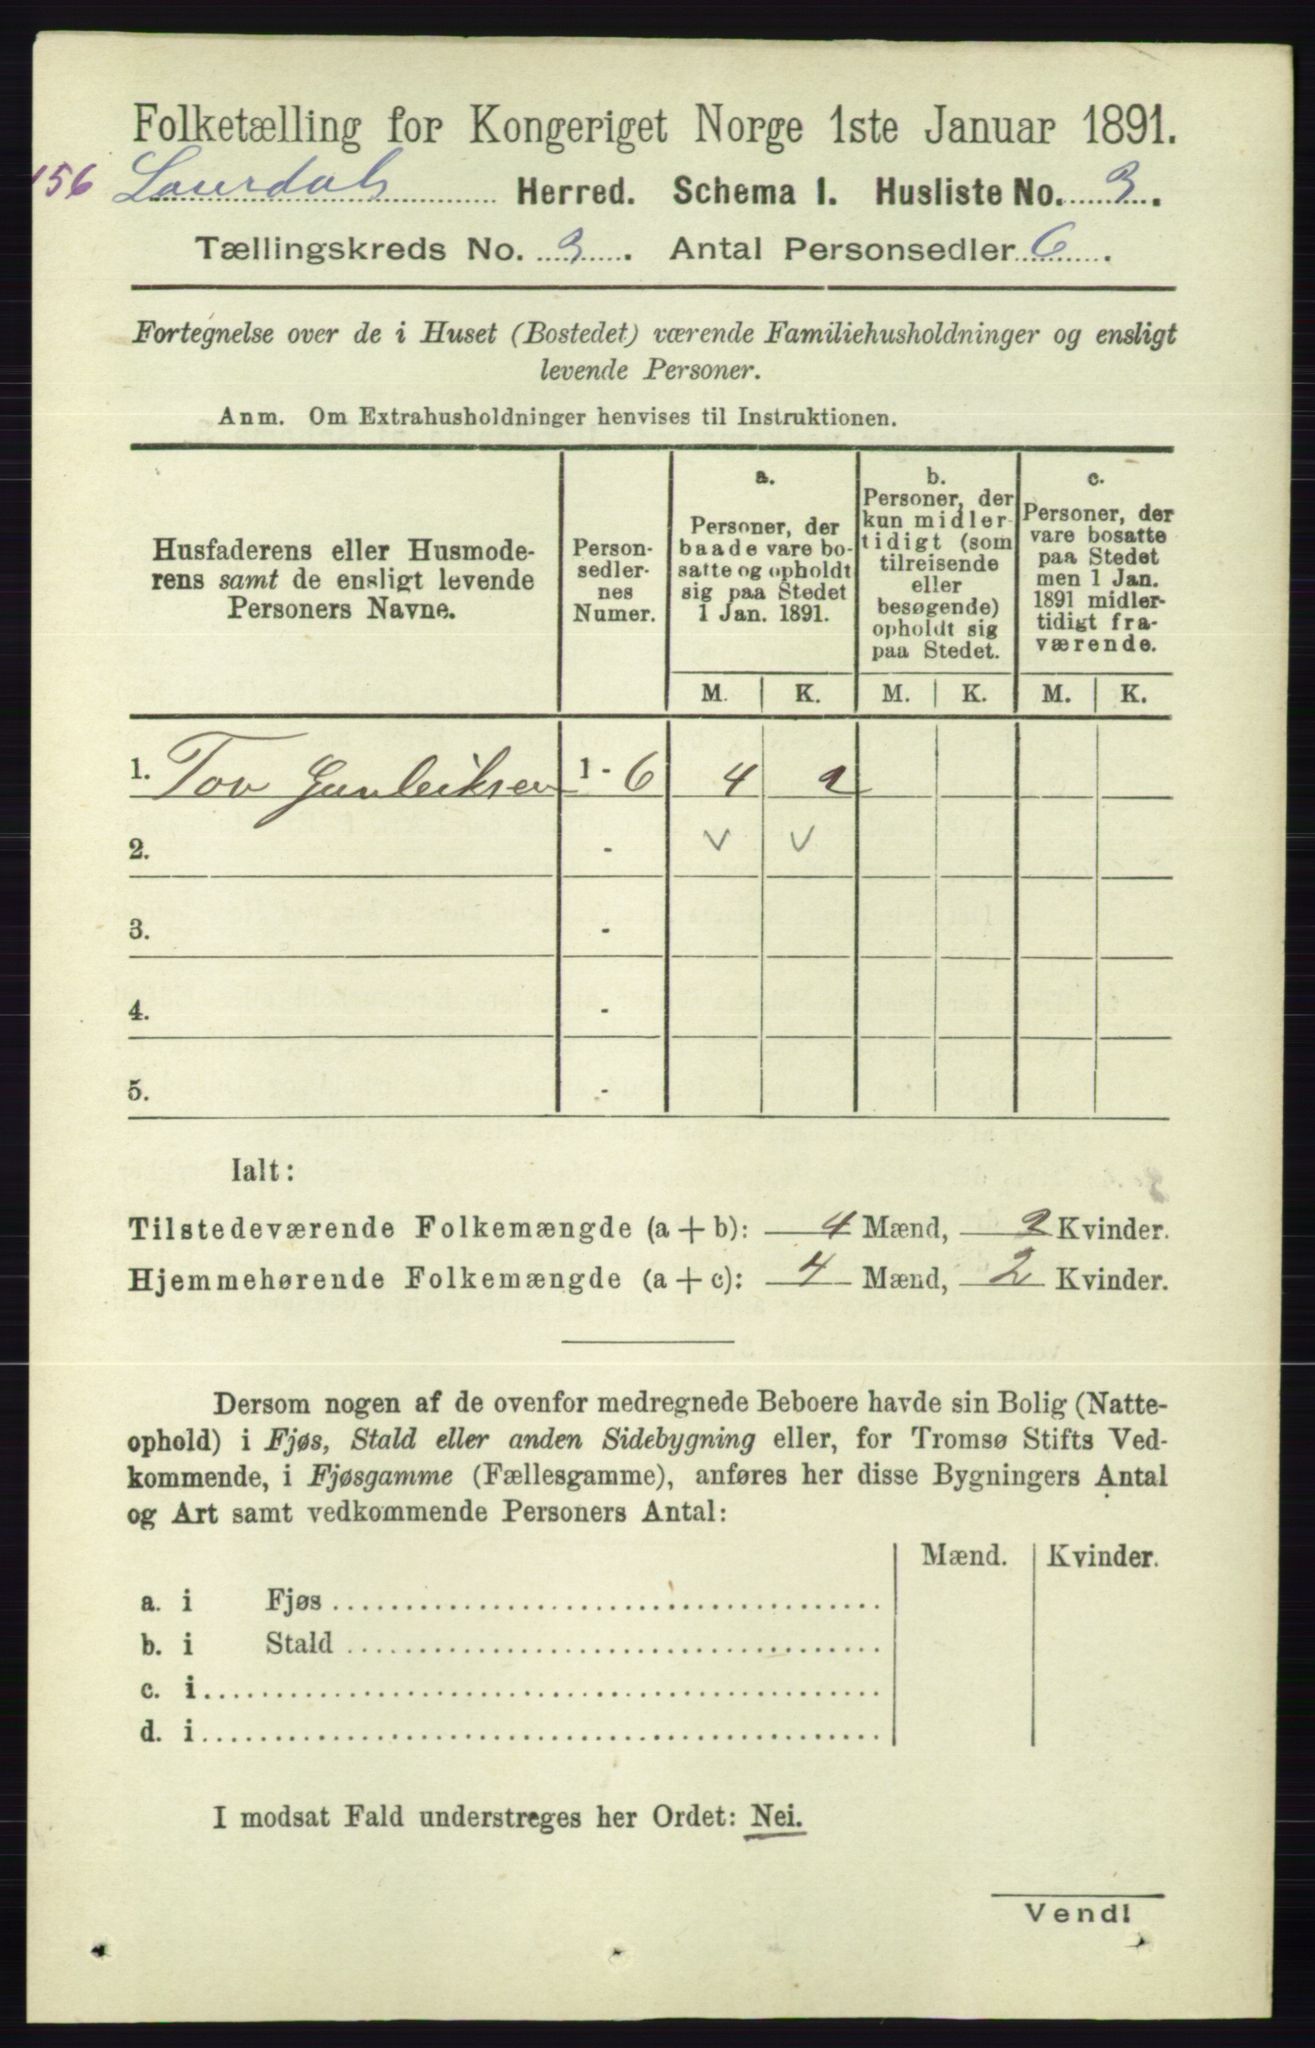 Folketælling for Kongeriget Norge 1ste Januar 1891.
156 Laurdals Herred. Schema 1. Husliste No. 3.
Tællingskreds No. 3. Antal Personsedler 6.
Fortegnelse over de i Huset (Bostedet) værende Familiehusholdninger og ensligt
levende Personer.
Anm. Om Extrahusholdninger henvises til Instruktionen.
Husfaderens eller Husmode-
rens samt de ensligt levende
Personers Navne.
Person-
sedler-
nes
Numer.
a.
Personer, der
baade vare bo-
satte og opholdt
sig paa Stedet
1 Jan. 1891.
b.
Personer, der
kun midler-
tidigt (som
tilreisende
eller
besøgende)
opholdt sig
paa Stedet.
c.
Personer, der
vare bosatte
paa Stedet
men 1 Jan.
1891 midler-
tidigt fra-
værende.
M. K. M. K. M. K.
1. Tov Gunleiksen 1 - 6 4 2
2. - v v
3. -
4. -
5. -
Ialt:
Tilstedeværende Folkemængde (a + b): 4 Mænd, 2 Kvinder.
Hjemmehørende Folkemængde (a + c): 4 Mænd, 2 Kvinder.
Dersom nogen af de ovenfor medregnede Beboere havde sin Bolig (Natte-
ophold) i Fjøs, Stald eller anden Sidebygning eller, for Tromsø Stifts Ved-
kommende, i Fjøsgamme (Fællesgamme), anføres her disse Bygningers Antal
og Art samt vedkommende Personers Antal:
Mænd. Kvinder.
a. i Fjøs
b. i Stald
c. i
d. i
I modsat Fald understreges her Ordet: Nei.
Vend!